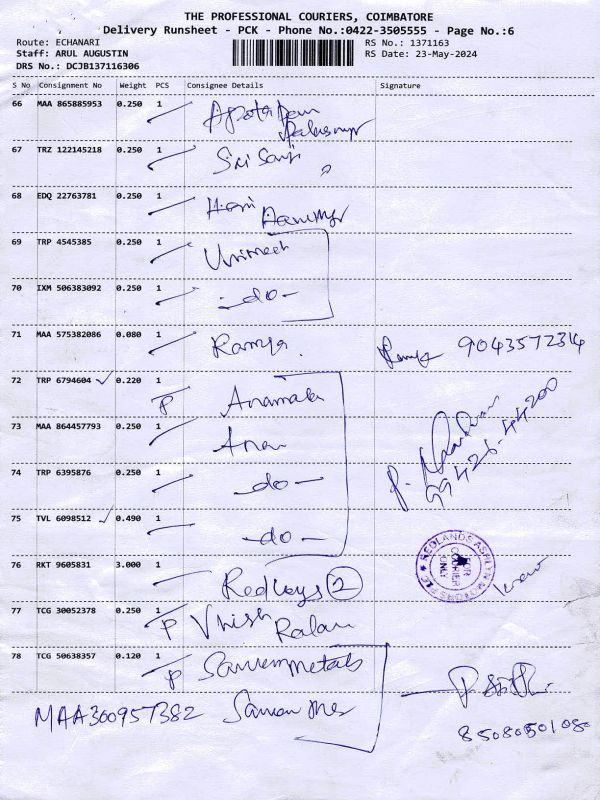 THE PROFESSIONAL COURIERS, COIMBATORE
Delivery Runsheet - PCK - Phone No.:0422-3505555 - Page No.:6
Route: ECHANARI
RS No.: 1371163
Staff: ARUL AUGUSTIN
RS Date: 23-May-2024
DRS No.: DCJB137116306
S No Consignment No Weight PCS Consignee Details Signature
66 MAA 865885953 0.250 1
67 TRZ 122145218 0.250 1 Sri
68 EDQ 22763781 0.250 1 Hari
69 TRP 4545385 0.250 1
70 IXM 506383092 0.250 1 -do-
71 MAA 575382086 0.080 1 Ramya. Ramya 9043572314
72 TRP 6794604 0.220 1 P
73 MAA 864457793 0.250 1
74 TRP 6395876 0.250 1 -do-
75 TVL 6098512 0.490 1 -do-
REDLANDS ASHLYN MOTORS PLC
FOR COURIER ONLY
76 RKT 9605831 3.000 1 2
77 TCG 30052378 0.250 1 P
78 TCG 50638357 0.120 1 P
MAA300957382
8508050108